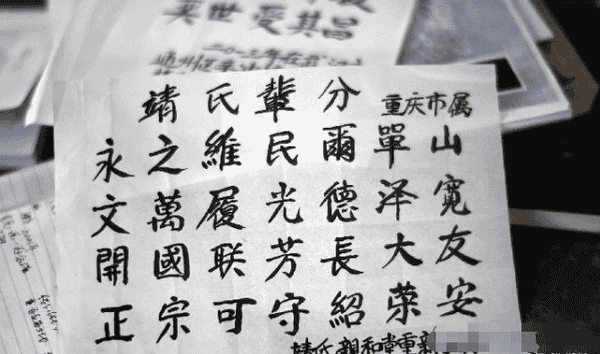 世其昌
二〇一三年在
靖氏輩分 重庆市属
永之維民爾單山
文萬履光德泽寬
開國联芳長大友
正宗可守紹荣安
靖氏親和堂重新